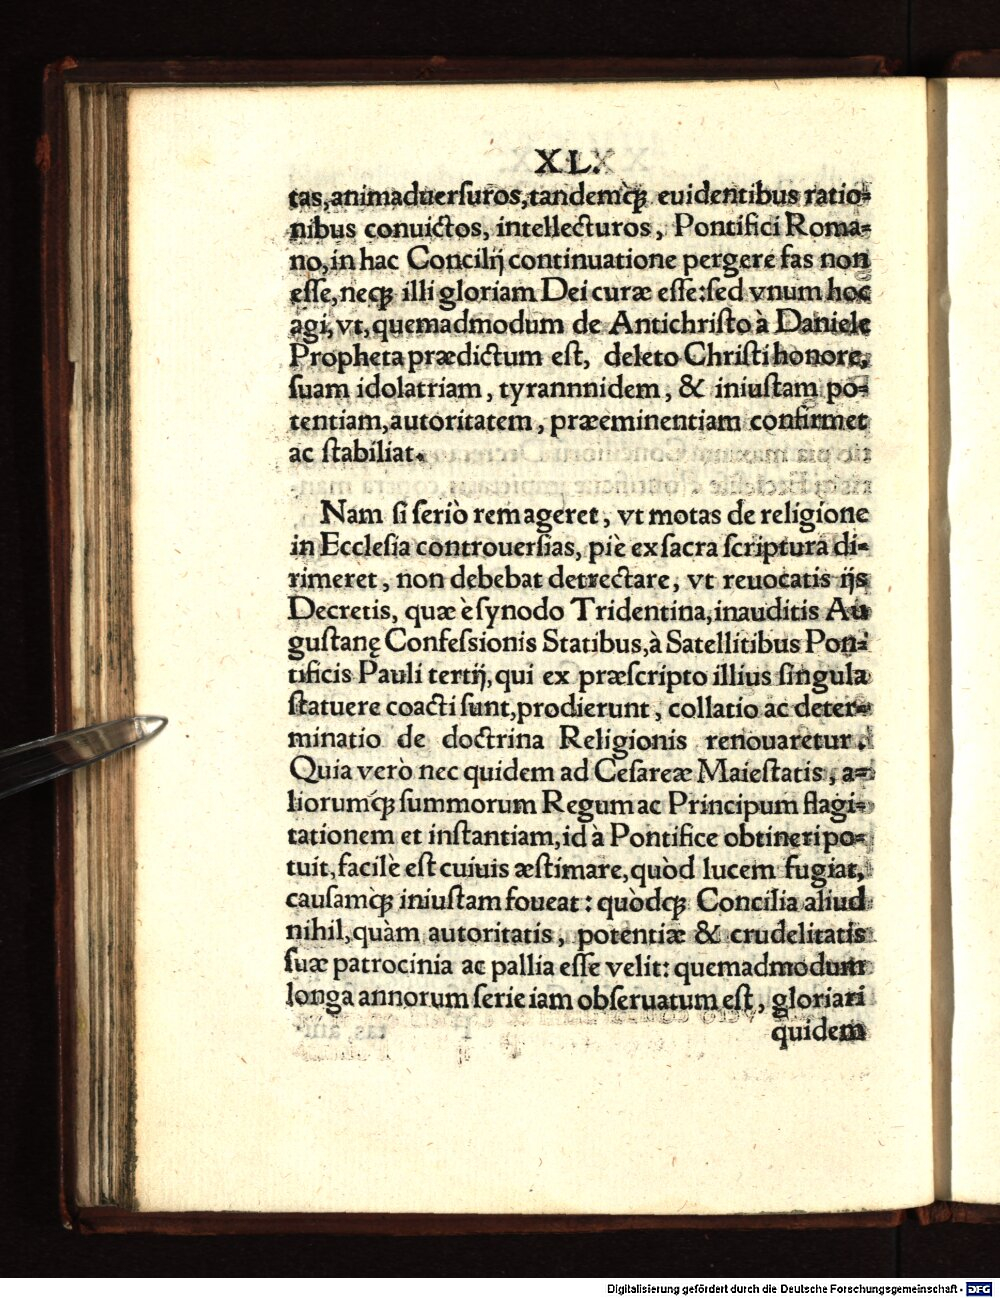 XL.
tas,animaduerſuros,tandemq́ꝫ euidentibus ratio-
nibus conuictos, intellecturos, Pontifici Roma-
no,in hac Concilij continuatione pergere fas non
eſſe,neqꝫ illi gloriam Dei curæ eſſe:ſed vnum hoc
agi,vt,quemadmodum de Antichriſto à Daniele
Propheta prædictum eſt, deleto Chriſti honore,
ſuam idolatriam, tyrannnidem, & iniuſtam po-
tentiam,autoritatem, præeminentiam confirmet
ac ſtabiliat.
Nam ſi ſeriò rem ageret, vt motas de religione
in Eccleſia controuerſias, piè ex ſacra ſcriptura di-
rimeret, non debebat detrectare, vt reuocatis ijs
Decretis, quæ è ſynodo Tridentina,inauditis Au
guſtanę Confeſsionis Statibus,à Satellitibus Pon-
tificis Pauli tertij,qui ex præſcripto illius ſingula
ſtatuere coacti ſunt,prodierunt, collatio ac deter-
minatio de doctrina Religionis renouaretur.
Quia verò nec quidem ad Ceſareæ Maieſtatis, a-
liorumq́ꝫ ſummorum Regum ac Principum flagi-
tationem et inſtantiam,id à Pontifice obtineri po-
tuit,facilè eſt cuiuis æſtimare,quòd lucem fugiat,
cauſamq́ꝫ iniuſtam foueat: quòdqꝫ Concilia aliud
nihil,quàm autoritatis, potentiæ & crudelitatis
ſuæ patrocinia ac pallia eſſe velit: quemadmodum
longa annorum ſerie iam obſeruatum eſt, gloriari
quidem
Digitalisierung gefördert durch die Deutsche Forschungsgemeinschaft - DFG